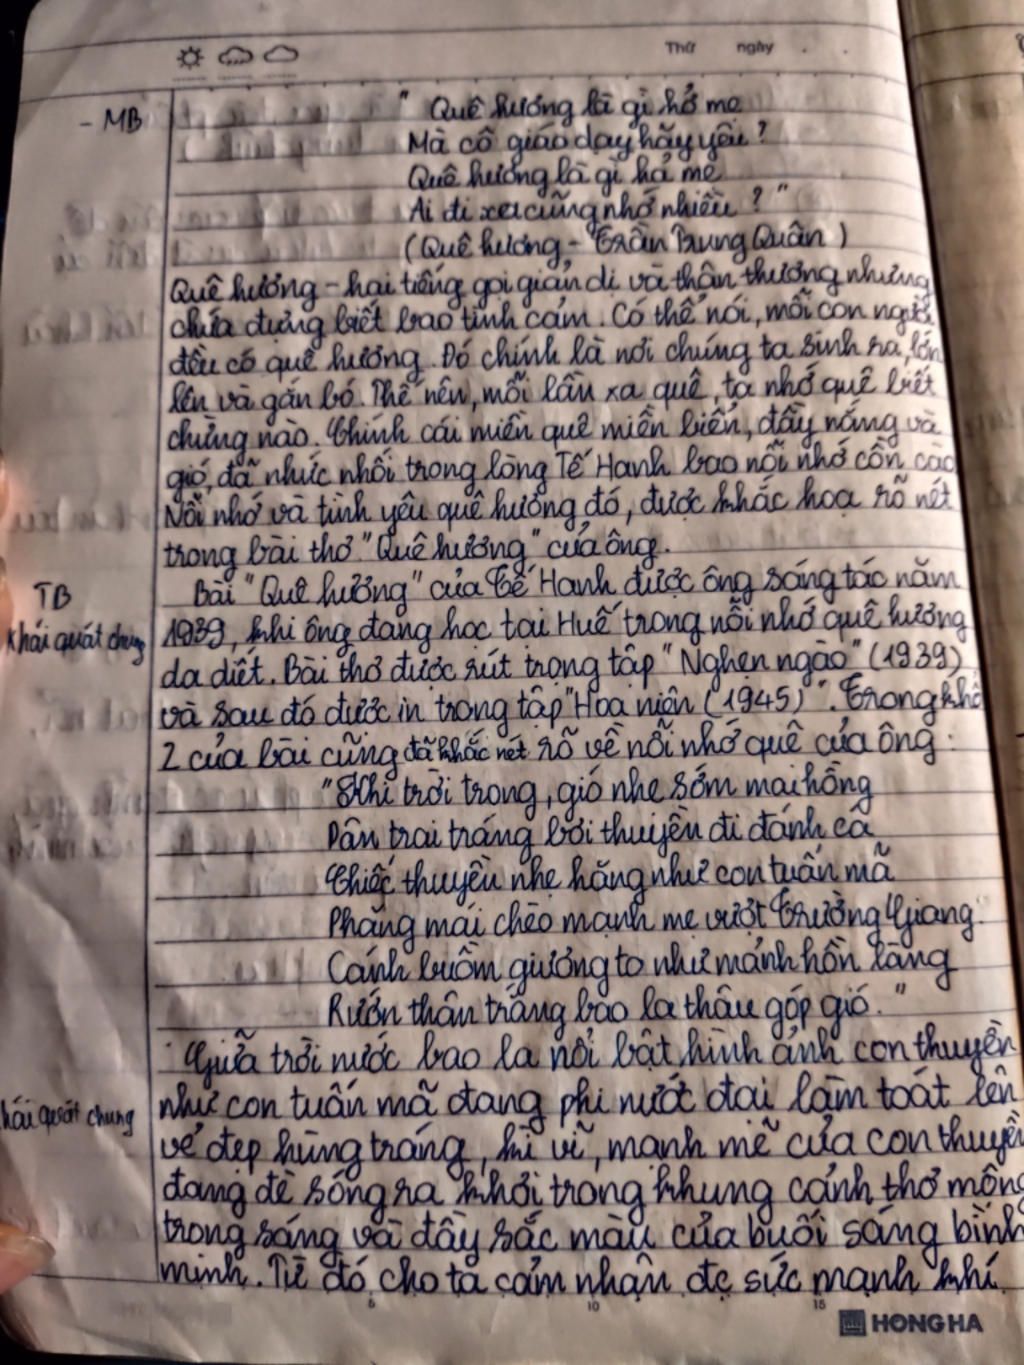 Thứ ngày . .
- MB
" Quê hương là gì hở mẹ
Mà cô giáo dạy hãy yêu ?
Quê hương là gì hả mẹ
Ai đi xa cũng nhớ nhiều ? "
( Quê hương - Trần Trung Quân )
Quê hương - hai tiếng gọi giản dị và thân thương nhưng
chứa đựng biết bao tình cảm. Có thể nói, mỗi con người
đều có quê hương. Đó chính là nơi chúng ta sinh ra, lớn
lên và gắn bó. Thế nên, mỗi lần xa quê, ta nhớ quê biết
chừng nào. Chính cái miền quê miền biển, đầy nắng và
gió, đã nhức nhối trong lòng Tế Hanh bao nỗi nhớ cồn cào
Nỗi nhớ và tình yêu quê hương đó, được khắc hoạ rõ nét
trong bài thơ "Quê hương" của ông.
TB
khái quát chung
Bài "Quê hương" của Tế Hanh được ông sáng tác năm
1939, khi ông đang học tại Huế trong nỗi nhớ quê hương
da diết. Bài thơ được rút trong tập "Nghẹn ngào" (1939)
và sau đó được in trong tập "Hoa niên (1945)". Trong khổ
2 của bài cũng đã khắc nét rõ về nỗi nhớ quê của ông :
"Khi trời trong, gió nhẹ sớm mai hồng
Dân trai tráng bơi thuyền đi đánh cá
Chiếc thuyền nhẹ hăng như con tuấn mã
Phăng mái chèo mạnh mẽ vượt Trường Giang
Cánh buồm giương to như mảnh hồn làng
Rướn thân trắng bao la thâu góp gió. "
hái quát chung
Giữa trời nước bao la nổi bật hình ảnh con thuyền
như con tuấn mã đang phi nước đại làm toát lên
vẻ đẹp hùng tráng, kì vĩ, mạnh mẽ của con thuyền
đang đè sóng ra khơi trong khung cảnh thơ mộng
trong sáng và đầy sắc màu của buổi sáng bình
minh. Từ đó cho ta cảm nhận đc sức mạnh khí
5 10 15
HONG HA